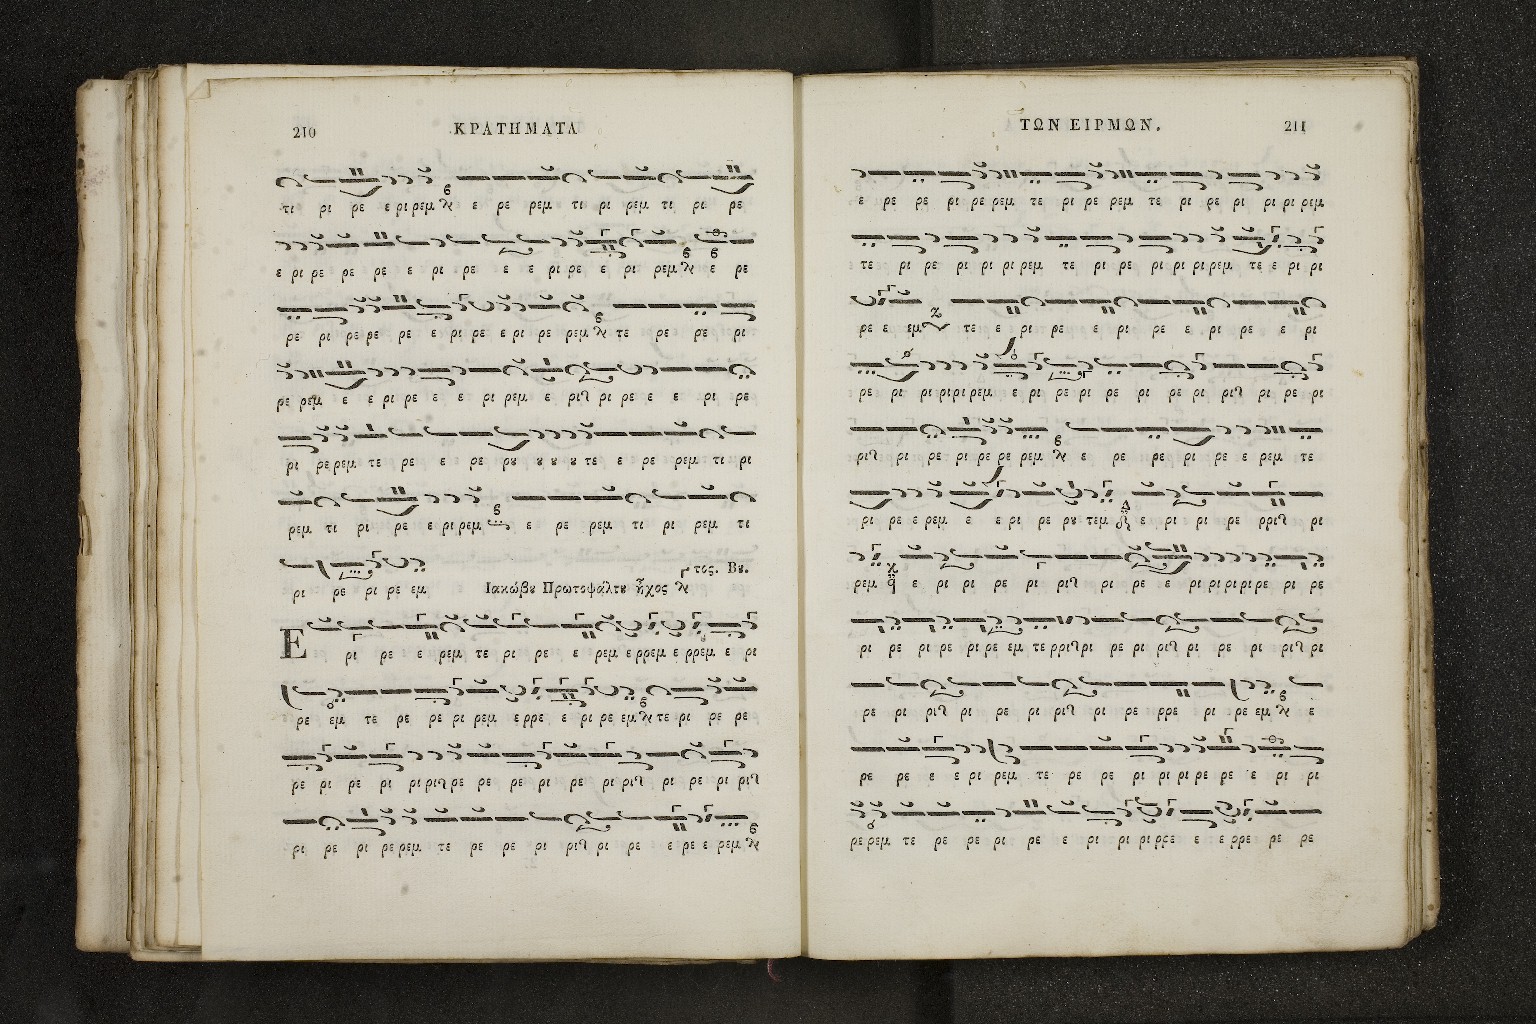 210 ΚΡΑΤΗΜΑΤΑ
τι ρι ρε ε ρι ρεμ ε ρε ρεμ τι ρι ρεμ τι ρι ρε
ε ρι ρε ρε ρε ε ρι ρε ε ε ρι ρε ε ρι ρεμ ε ρε
ρε ρι ρε ρε ρε ε ρι ρε ε ρι ρε ρεμ τε ρε ρε ρι
ρε ρεμ ε ε ρι ρε ε ε ρι ρεμ ε ρι ρι ρε ε ε ρι ρε
ρι ρε ρεμ τε ρε ε ρε ρȣ ȣ ȣ ȣ τε ε ρε ρεμ τι ρι
ρεμ τι ρι ρε ε ρι ρεμ ε ρε ρεμ τι ρι ρεμ τι
ρι ρε ρι ρε εμ Ιακώβȣ Πρωτοψάλτȣ ἦχος τος. Βȣ.
Ε ρι ρε ε ρεμ τε ρι ρε ε ρεμ ε ρρεμ ε ρρεμ ε ρι
ρε εμ τε ρε ρε ρι ρεμ ε ρρε ε ρι ρε εμ τε ρι ρε ρε
ρε ρι ρε ρι ρι ρι ρε ρε ρε ρι ρε ρι ρι ρε ρι ρι
ρι ρε ρι ρε ρεμ τε ρε ρε ρι ρι ρι ρε ε ρε ε ρεμ
ΤΩΝ ΕΙΡΜΩΝ. 211
ε ρε ρε ρι ρε ρεμ τε ρι ρε ρεμ τε ρι ρε ρι ρι ρι ρεμ
τε ρι ρε ρι ρι ρι ρεμ τε ρι ρε ρι ρι ρι ρεμ τε ε ρι ρι
ρε ε εμ τε ε ρι ρε ε ρι ρε ε ρι ρε ε ρι
ρε ρι ρι ρι ρι ρεμ ε ρι ρε ρι ρε ρι ρε ρι ρι ρι ρε ρι
ρι ρι ρε ρι ρε ρε ρεμ ε ρε ρε ρι ρε ε ρεμ τε
ρι ρε ε ρεμ ε ε ρι ρε ρȣ τεμ ε ρι ρι ρε ρρι ρι
ρεμ ε ρι ρι ρε ρι ρι ρι ρε ε ρι ρι ρι ρι ρε ρι ρε
ρι ρε ρι ρε ρι ρε εμ τε ρρι ρι ρε ρι ρι ρι ρε ρι ρι ρι
ρε ρι ρι ρι ρε ρι ρι ρι ρε ρρε ρι ρε εμ ε
ρε ρε ε ε ρι ρεμ τε ρε ρε ρι ρι ρι ρε ρε ε ρι ρι
ρε ρεμ τε ρε ρε ρι ρε ε ρι ρι ρι ρρε ε ε ρρε ρε ρε